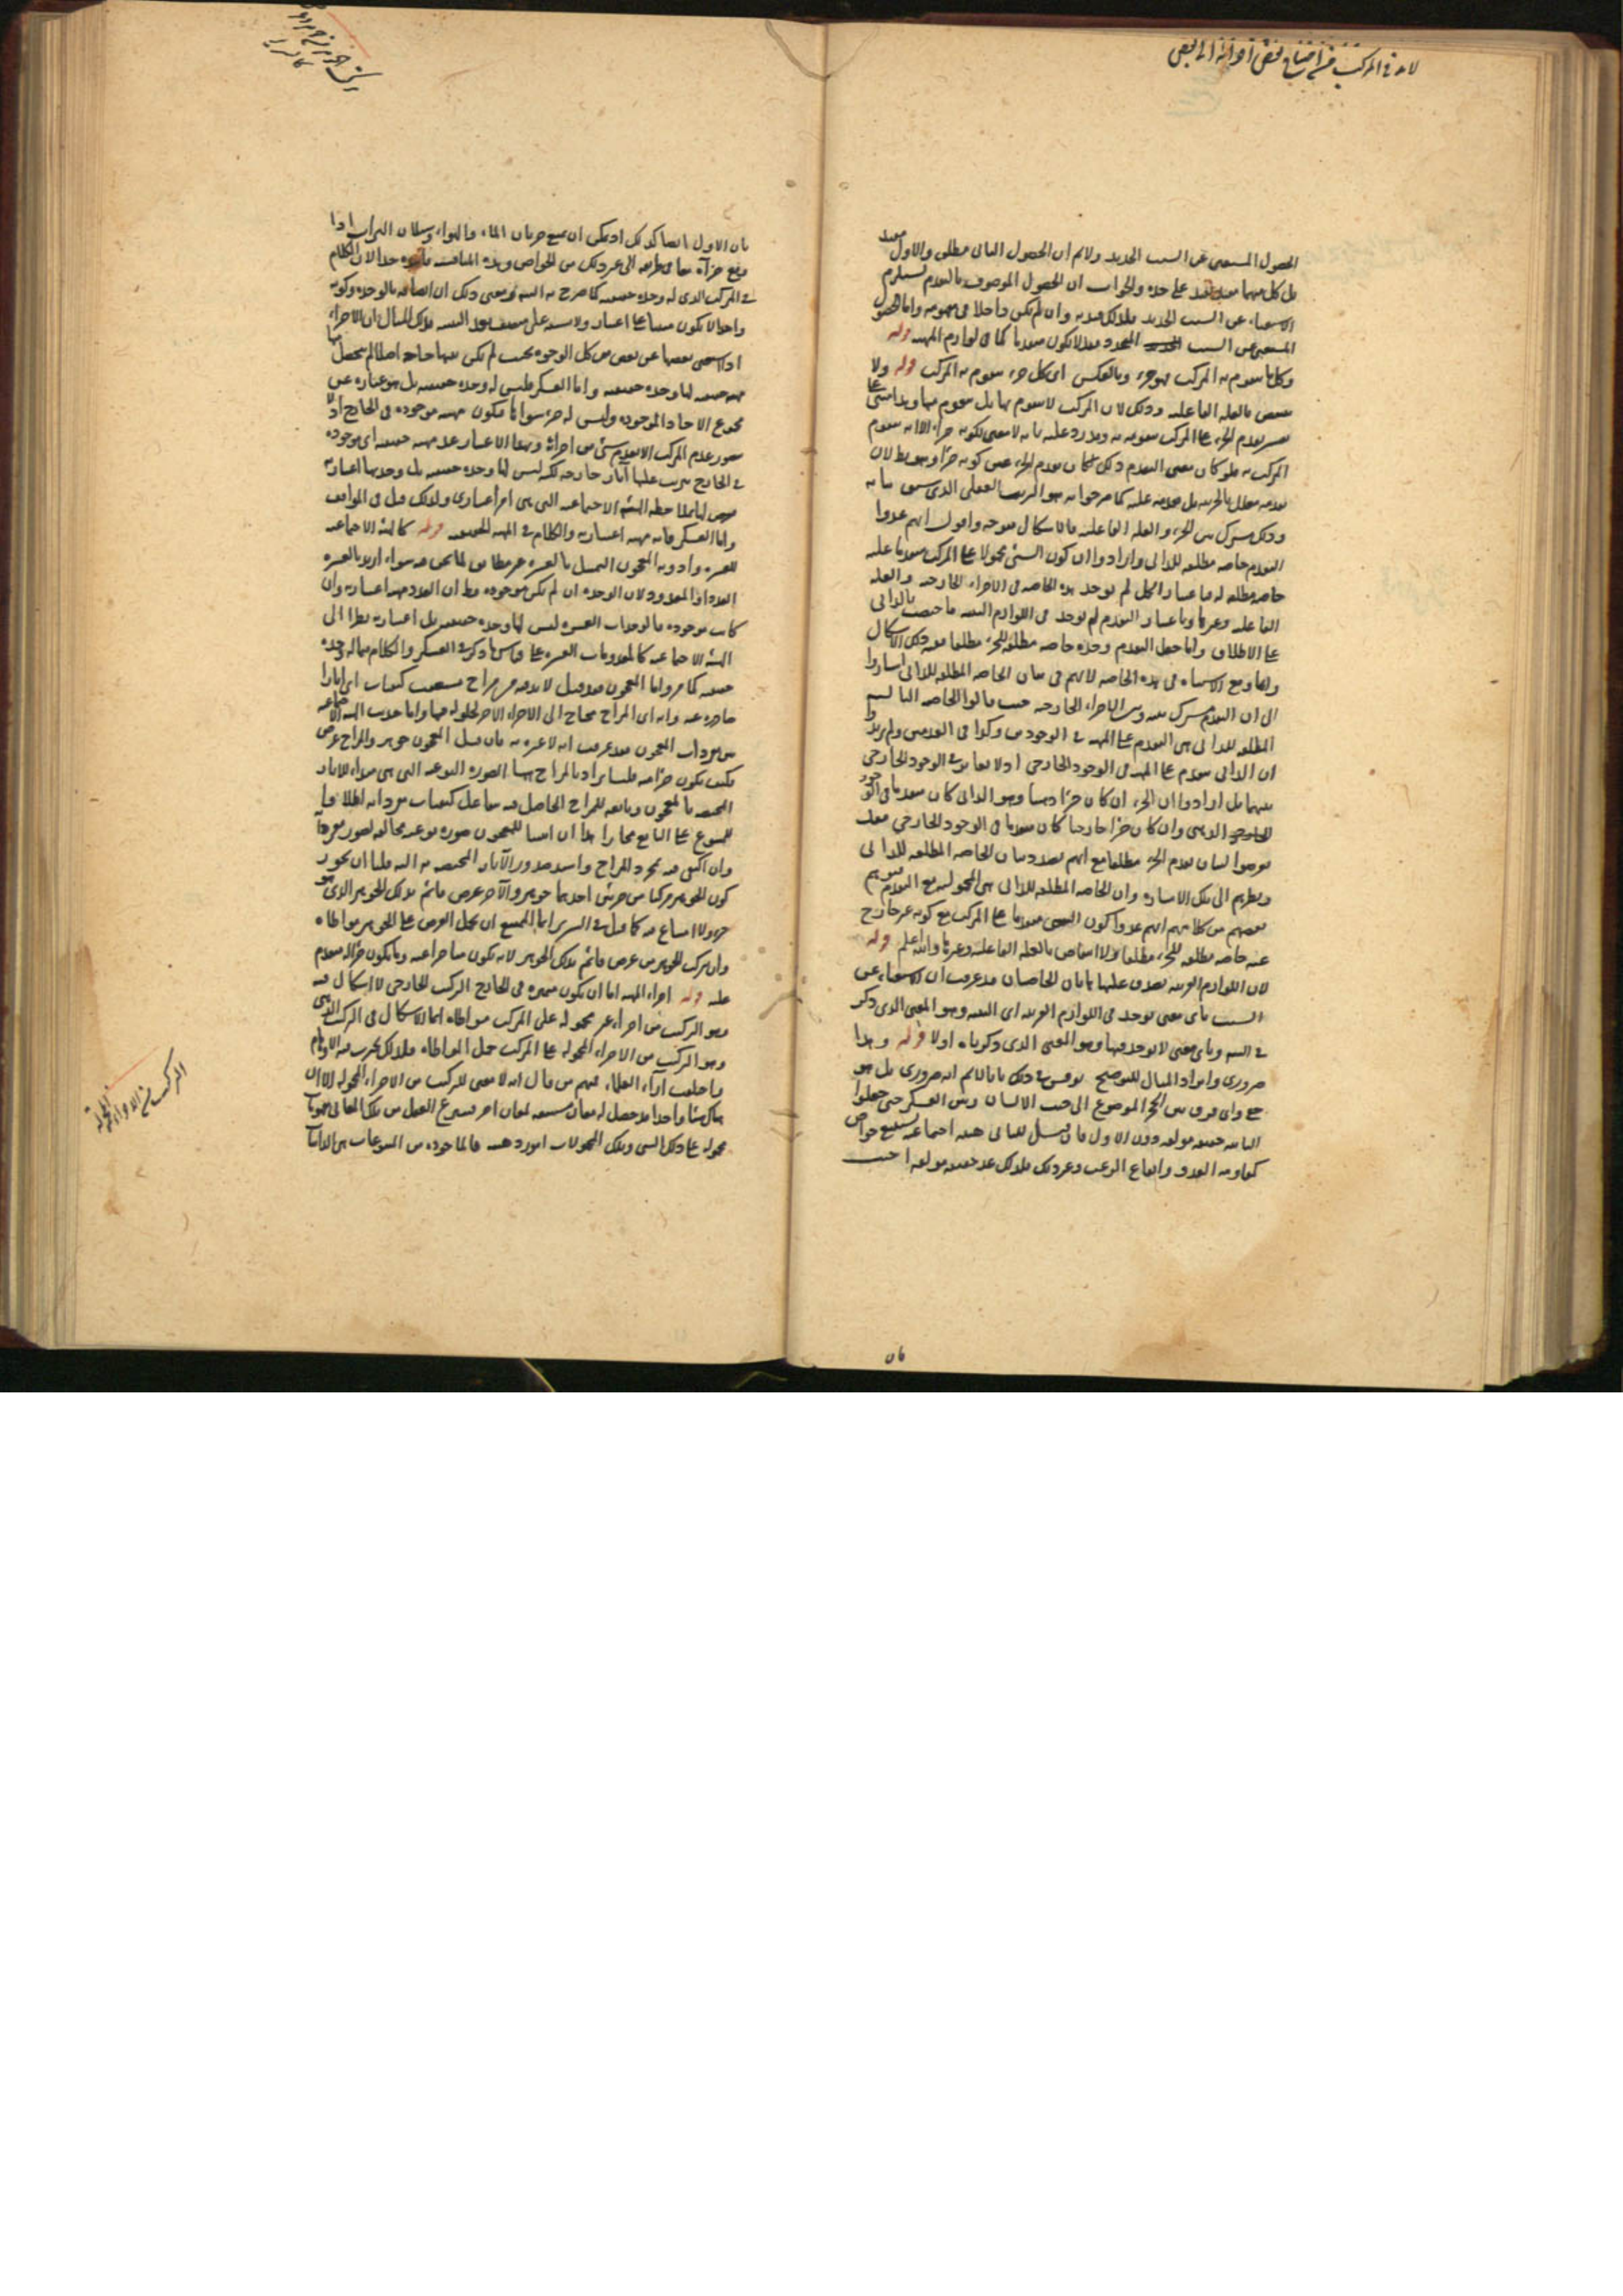 لابد في المركب من احتياج بعض اجزائه الى البعض
الحصول المستغنى عن السبب الجديد ولا تم ان الحصول الثاني مطلق والاول مقيد
بل كل منهما مقيد على حده والجواب ان الحصول الموصوف بالتقدم يستلزم
الاستغناء عن السبب الجديد فلذلك قيد به وان لم يكن داخلا في مفهومه واما الحصول
المستغنى عن السبب المتجدد فقد لا يكون متقدما كما في لوازم المهية قوله
وكل ما يتقوم به المركب فهو جزء وبالعكس اى كل جزء يتقوم به المركب قوله ولا
ينتقض بالعلة الفاعلية وذلك لان المركب لا يتقوم بها بل يتقوم منها وهذا مبنى على
تفسير تقدم الجزء على المركب بتقومه به ويرد عليه بانه لا معنى لكونه جزءا الا انه يتقوم
المركب به فلو كان معنى التقدم ذلك لكان تقدم الجزء عين كونه جزءا وهو بط لان
تقدمه معلل بالجزئية بل تقدمه عليه كما صرحوا به هو الترتيب العقلى الذى سبق بيانه
وذلك مشترك بين الجزء والعلة الفاعلية فالاشكال متوجه واقول انهم عدوا
التقدم خاصة مطلقة للذاتى وارادوا ان كون الشئ محمولا على المركب متقدما عليه
خاصة مطلقة له فباعتبار الحمل لم توجد هذه الخاصة في الاجزاء الخارجية والعلة
الفاعلية وغيرها وباعتبار التقدم لم توجد في اللوازم البينة فاختصت بالذاتى
على الاطلاق واما جعل التقدم وحده خاصة مطلقة للجزء مطلقا ففيه ذلك الاشكال
ولما وقع الاشتباه في هذه الخاصة لانهم في بيان الخاصة المطلقة للذاتى اشاروا
الى ان التقدم مشترك بينه وبين الاجزاء الخارجية حيث قالوا الخاصة الثالثة
المطلقة للذاتى هى التقدم على المهية في الوجودين وكذا في العدمين ولم يريدوا
ان الذاتى يتقدم على المهية في الوجود الخارجى اذ لا تغاير في الوجود الخارجى
بينهما بل ارادوا ان الجزء ان كان جزءا ذهنيا وهو الذاتى كان متقدما في الوجود
الذهنى وان كان جزءا خارجيا كان متقدما في الوجود الخارجى فقد
تعرضوا لبيان تقدم الجزء مطلقا مع انهم بصدد بيان الخاصة المطلقة للذاتى
ونظرهم الى تلك الاشارة وان الخاصة المطلقة للذاتى هى المحمولية مع التقدم توهم
بعضهم من كلامهم انهم عدوا كون الشئ متقدما على المركب مع كونه غير خارج
عنه خاصة مطلقة للجزء مطلقا ولا انتقاض بالعلة الفاعلية وغيرها والله اعلم قوله
لان اللوازم القريبة يصدق عليها هاتان الخاصتان قد عرفت ان الاستغناء عن
السبب باى معنى يوجد في اللوازم القريبة اى البينة وهو المعنى الذى ذكر
في البينة وباى معنى لا يوجد فيها وهو المعنى الذى ذكرناه اولا قوله وهذا
ضرورى وايراد المثال للتوضيح نوقش في ذلك بانا لا نم انه ضرورى بل هو
واى فرق بين الحجر الموضوع الى جنب الانسان وبين العسكر حتى جعلوا
الثانى حقيقة مؤلفة دون الاول فان قيل للثانى هيئة اجتماعية تستتبع خواص
كمقاومة العدو وايقاع الرعب وغير ذلك فلذلك عد حقيقة مؤلفة اجيب
بان
بان الاول ايضا كذلك اذ يمكن ان يمنع جريان الماء والهواء وسيلان التراب اذا
وقع جزآه معا في طريقه الى غير ذلك من الخواص وهذه المناقشة باردة جدا لان الكلام
في المركب الذى له وحدة حقيقية كما صرح به السيد ومعنى ذلك ان اتصافه بالوحدة وكونه
واحدا لا يكون مبنيا على اعتبار
اذا استغنى بعضها عن بعض من كل الوجوه بحيث لم يكن بينها حاجة اصلا لم يحصل منها
مهية حقيقية لها وحدة حقيقية واما العسكر فليس له وحدة حقيقية بل هو عبارة عن
مجموع الاحاد الموجودة وليس له جزء سواها فيكون مهية موجودة في الخارج اذ لا
يتصور عدم المركب الا بعدم شئ من اجزائه وبهذا الاعتبار عد مهية حقيقية اى موجودة
في الخارج يترتب عليها آثار خارجية لكن ليس لها وحدة حقيقية بل وحدتها اعتبارية
بملاحظة الهيئة الاجتماعية التى هى امر اعتبارى ولذلك قيل في المواقف
واما العسكر فانه مهية اعتبارية والكلام في المهية الحقيقية قوله كالهيئة الاجتماعية
للعشرة وادوية المعجون التمثيل بالعشرة غير مطابق لما نحن فيه سواء اريد بالعشرة
العدد او المعدود لان الوحدة ان لم تكن موجودة فظ ان العدد مهية اعتبارية وان
كانت موجودة فالوحدات العشرة ليس لها وحدة حقيقية بل اعتبارية نظرا الى
الهيئة الاجتماعية كالمعدودات العشرة على قياس ما ذكر في العسكر والكلام فيما له وحدة
حقيقية كما مر واما المعجون فقد قيل لابد فيه من مزاج يستعقب كيفيات اى اثارا
صادرة عنه وانه اى المزاج محتاج الى الاجزاء الاخر لحلوله فيها واما حديث الهيئة الاجتماعية
بين مفردات المعجون فقد عرفت انه لا عبرة به فان قيل المعجون جوهر والمزاج عرض
فكيف يكون جزءا منه قلنا يراد بالمزاج ههنا الصورة النوعية التى هى مبدأ للاثار
المختصة بالمعجون وتابعة للمزاج الحاصل فيه بتفاعل كيفيات مفرداته اطلاقا
للمتبوع على التابع مجازا هذا ان اثبتنا للمعجون صورة نوعية مخالفة لصور مفرداته
وان اكتفى فيه بمجرد المزاج واسند صدور الآثار المختصة به اليه قلنا ان تجوز
كون الجوهر مركبا من جزئين احدهما جوهر والآخر عرض قائم بذلك الجوهر الذى هو
جزء ولا امتناع فيه كما قيل في السرير انما الممتنع ان يحمل العرض على الجوهر مواطاة
وان يتركب الجوهر من عرض قائم بذلك الجوهر لانه يكون متأخرا عنه وما يكون جزءا له متقدم
عليه قوله اجزاء المهية اما ان يكون متميزة في الخارج التركب الخارجى لا اشكال فيه
وهو التركب من اجزاء غير محمولة على المركب مواطاة انما الاشكال في التركب الذهنى
وهو التركب من الاجزاء المحمولة على المركب حمل المواطاة ولذلك تحيرت فيه الاوهام
واختلفت آراء العلماء فمنهم من قال انه لا معنى للتركب من الاجزاء المحمولة الا ان
هناك شيئا واحدا قد حصل له معان مستتبعة لمعان اخر فينتزع العقل من تلك المعانى مفهومات
محمولة على ذلك الشئ وتلك المحمولات امور ذهنية فالماخوذة من المتبوعات هى الذاتيات
التركب من الاجزاء المحمولة